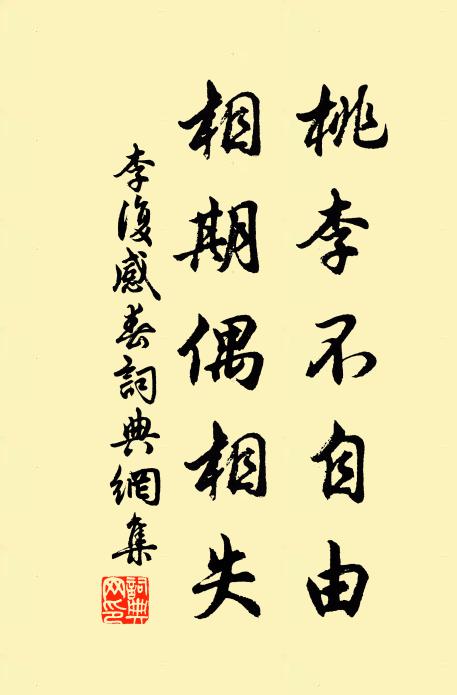 桃李不自由
相期偶相失
李復感春詞典網集
詞典网印